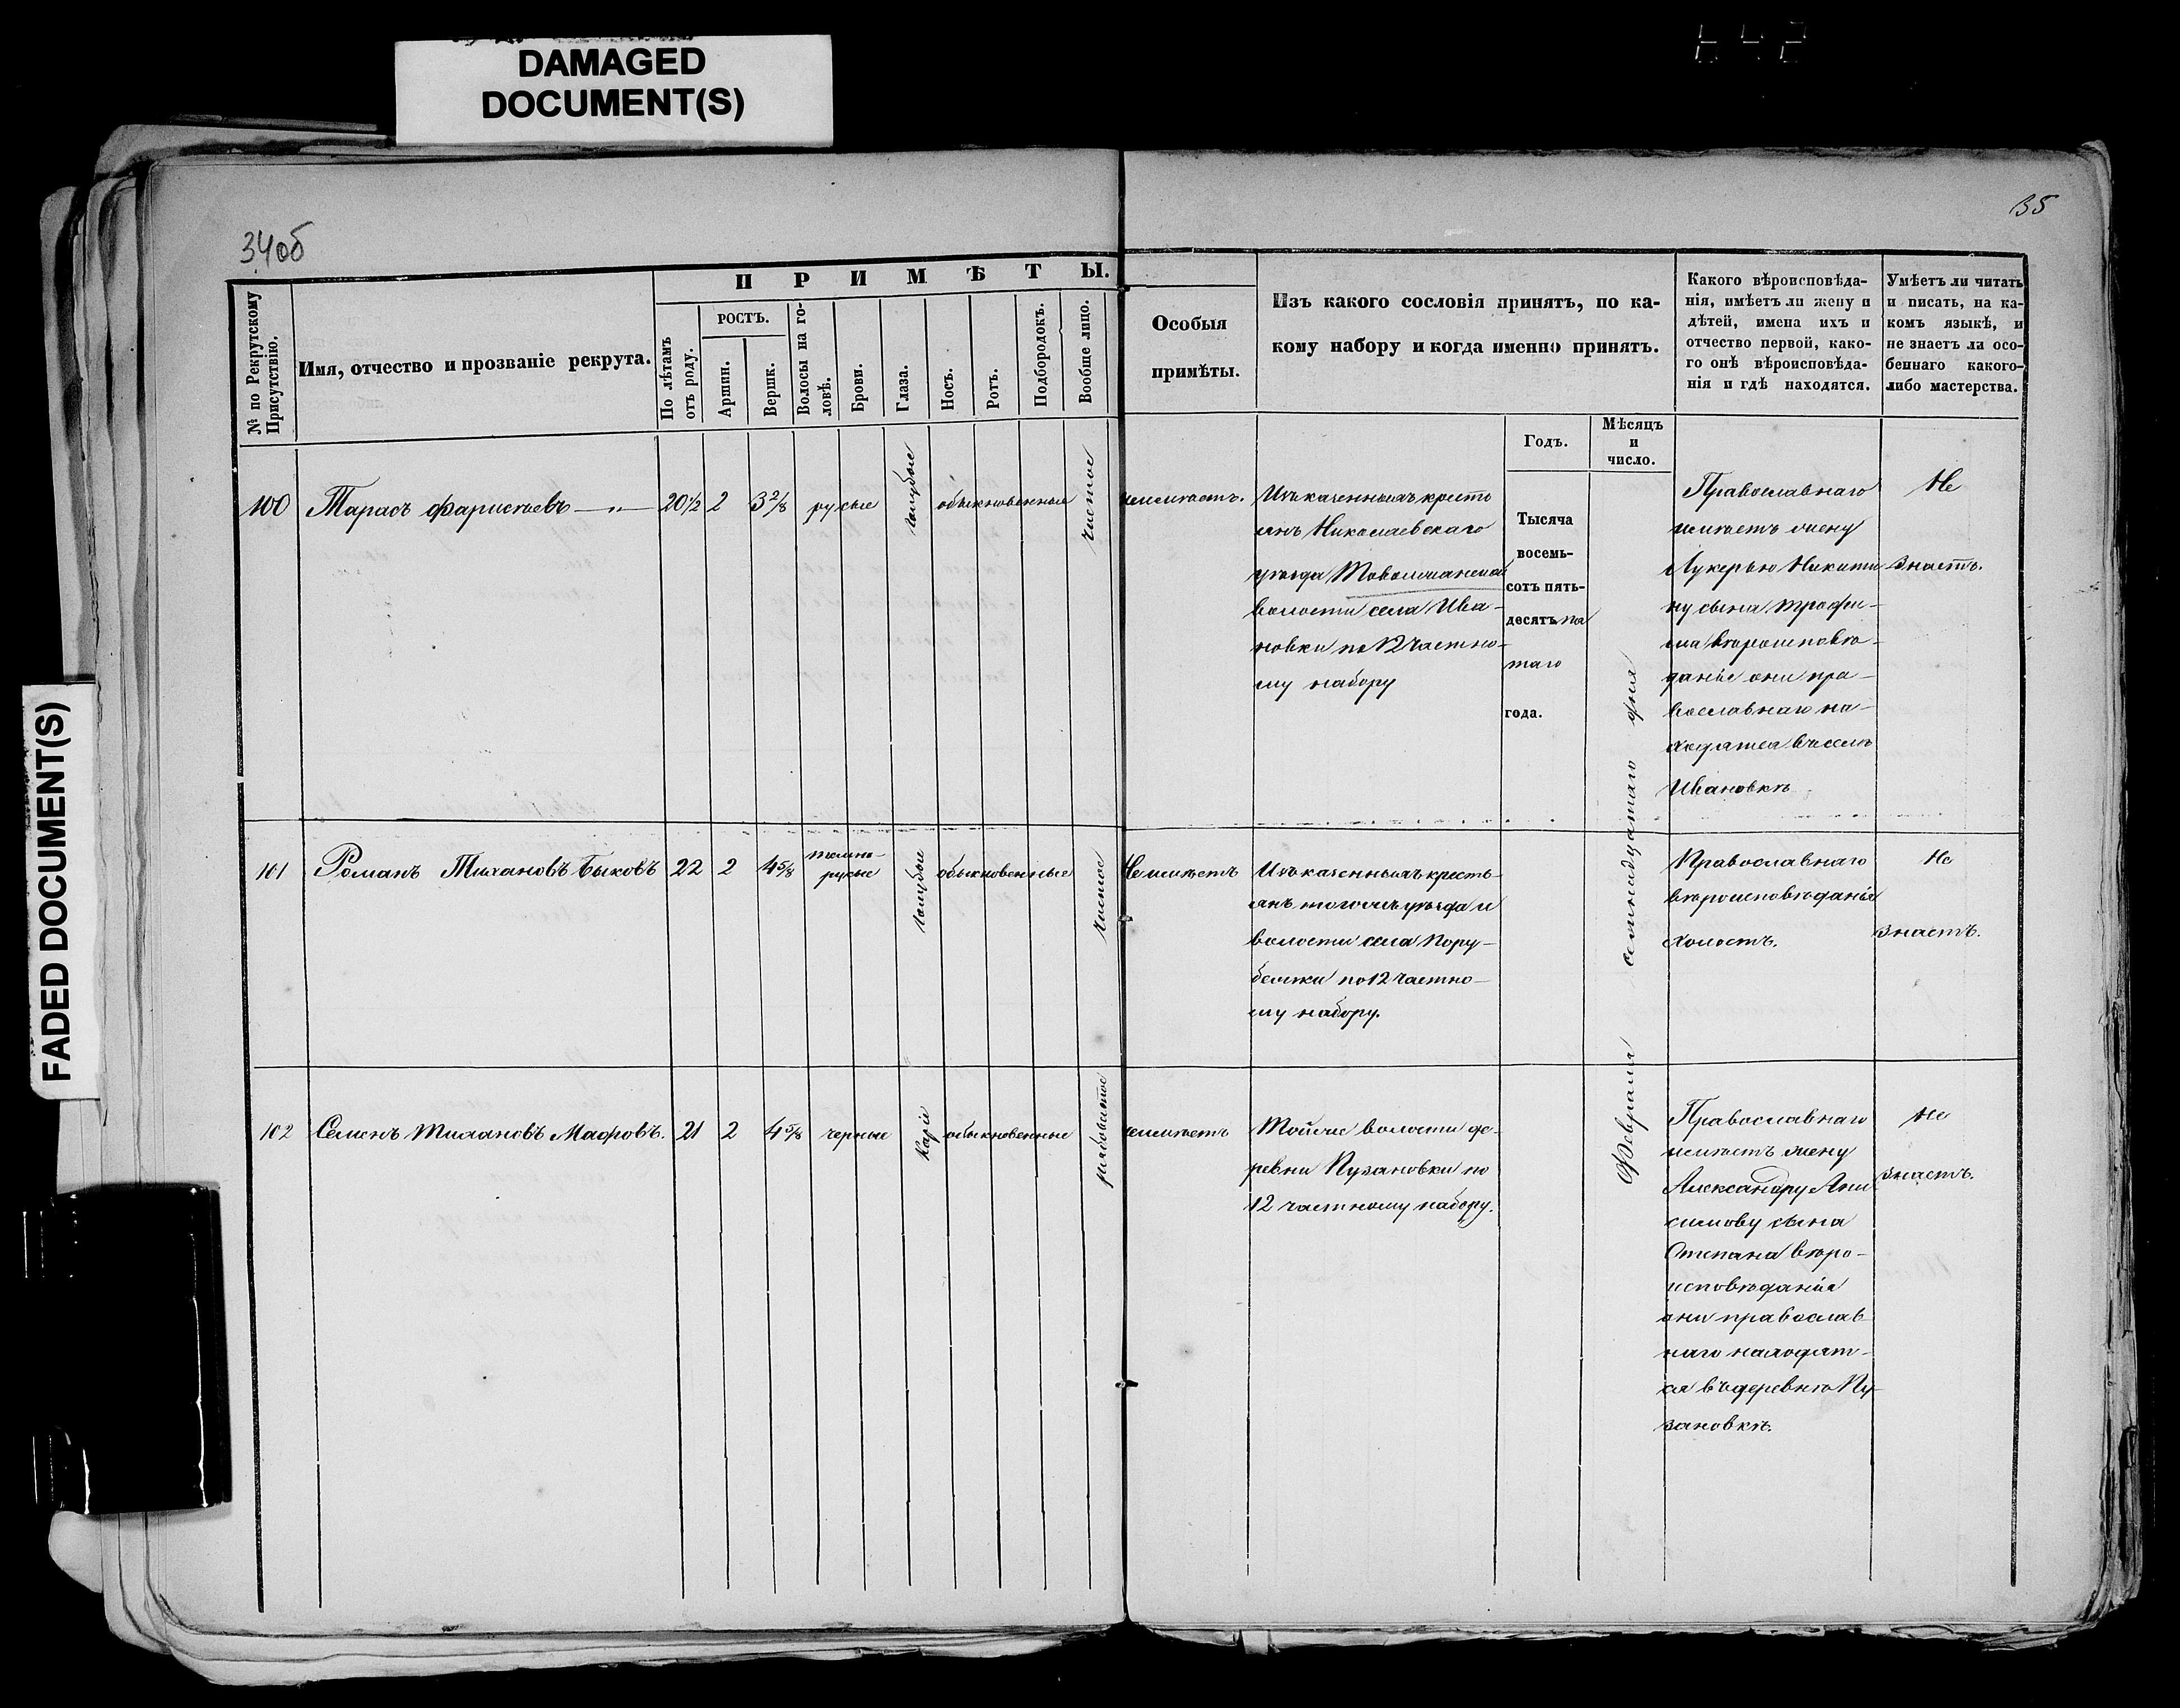 DAMAGED
DOCUMENT(S)
FADED DOCUMENT(S)
34об
35
№ по Рекрутскому Присутствію.
Имя, отчество и прозваніе рекрута.
ПРИМѢТЫ.
По лѣтамъ отъ роду.
РОСТЪ.
Аршин.
Вершк.
Волосы на головѣ.
Брови.
Глаза.
Носъ.
Ротъ.
Подбородокъ.
Вообще лицо.
Особыя
примѣты.
Изъ какого сословія принятъ, по ка-
кому набору и когда именно принятъ.
Годъ.
Мѣсяцъ
и
число.
Какого вѣроисповѣда-
нія, имѣетъ ли жену и
дѣтей, имена ихъ и
отчество первой, како-
го онѣ вѣроисповѣда-
нія и гдѣ находятся.
Умѣетъ ли читать
и писать, на ка-
комъ языкѣ, и
не знаетъ ли осо-
беннаго какого-
либо мастерства.
100 Тарасъ — " — 20½ 2 3 2/8 русые голубые обыкновенные чистое
неимѣетъ.
Изъ казенныхъ кресть
янъ Николаевскаго
уѣзда
волости села Ива-
новки по 12 частно-
му набору
Тысяча
восемь-
сотъ пять-
десятъ пя
таго
года.
Февраля семнидцатаго дня
Православнаго
имѣетъ жену
Лукерью Никити
ну сына Трофи-
ма вѣроисповѣ-
даніе они пра-
вославнаго на-
ходятся въ селѣ
Ивановкѣ
Не
знаетъ.
101 Романъ Тихановъ Быковъ 22 2 4 5/8 темно-
русые голубые обыкновенные чистое
Не имѣетъ
Изъ казенныхъ кресть-
янъ тогожъ уѣзда и
волости села Пору-
бежки по 12 частно-
му набору.
Православнаго
вѣроисповѣданія
холостъ.
Не
знаетъ.
102 Семенъ Тихановъ Мавровъ. 21 2 4 5/8 черные Каріе обыкновенные рябоватое
неимѣетъ
Тойже волости де-
ревни Пузановки по
12 частному набору.
Православнаго
имѣетъ жену
Александру Ани
симову сына
Степана вѣро-
исповѣданія
они православ
наго находят-
ся въ деревнѣ Пу-
зановкѣ.
Не
знаетъ.